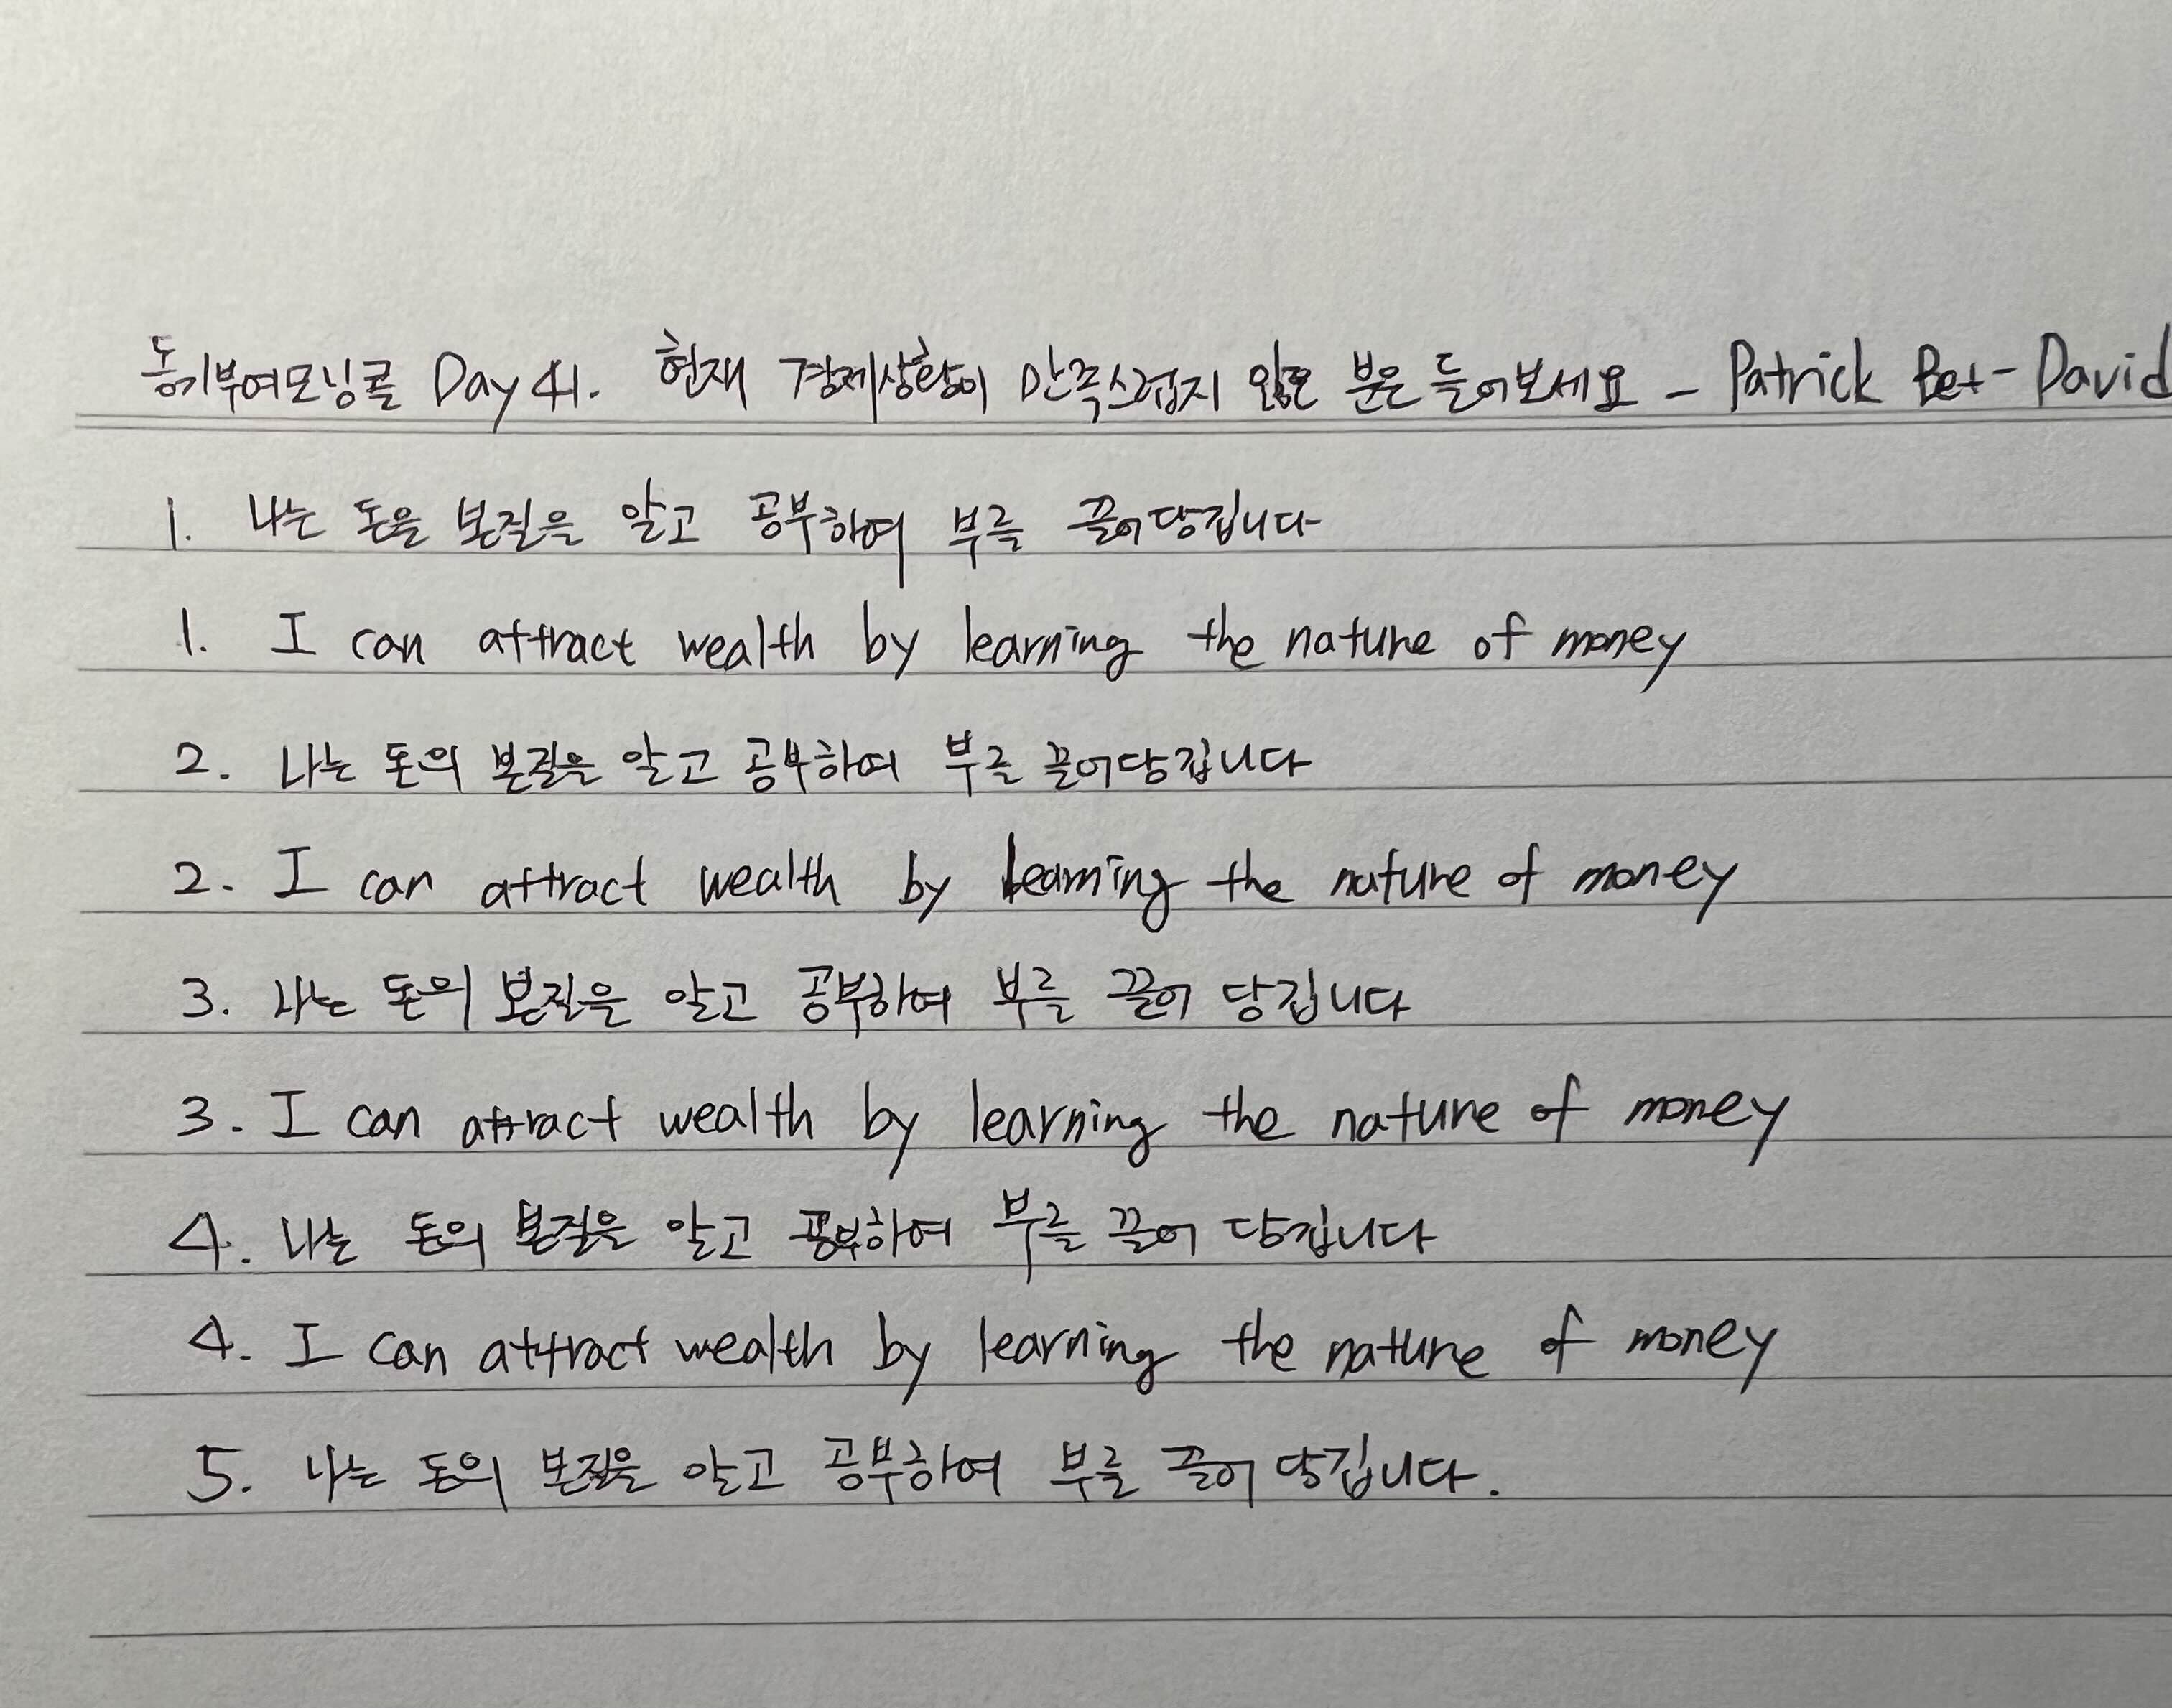 동기부여모닝콜 Day 41. 현재 경제상황이 만족스럽지 않은 분은 들어보세요 - Patrick Bet-David
1. 나는 돈은 본질을 알고 공부하여 부를 끌어당깁니다
1. I can attract wealth by learning the nature of money
2. 나는 돈의 본질을 알고 공부하여 부를 끌어당깁니다
2. I can attract wealth by learning the nature of money
3. 나는 돈의 본질을 알고 공부하여 부를 끌어 당깁니다
3. I can attract wealth by learning the nature of money
4. 나는 돈의 본질을 알고 공부하여 부를 끌어 당깁니다
4. I can attract wealth by learning the nature of money
5. 나는 돈의 본질을 알고 공부하여 부를 끌어 당깁니다.